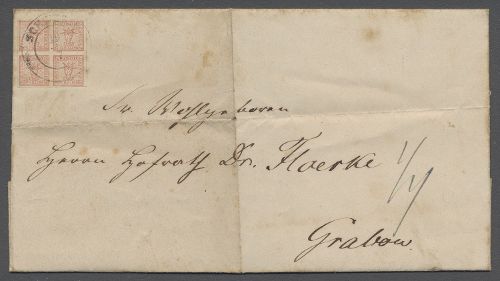 SCH
Sr. Wohlgeboren
Herrn Hofrath Dr. Floerke
Grabow.